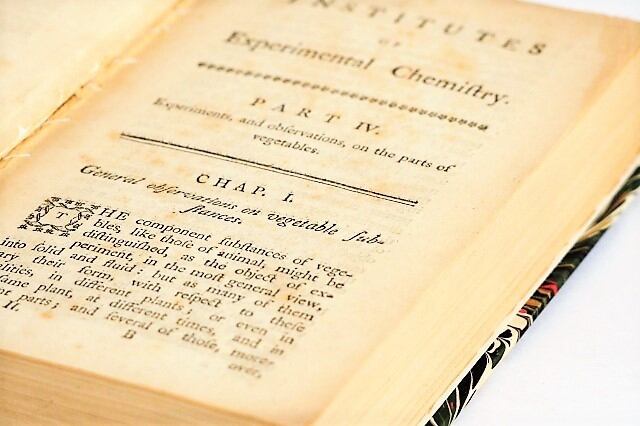 INSTITUTES
OF
Experimental Chemiſtry.
PART IV.
Experiments, and obſervations, on the parts of
vegetables.
CHAP. I.
General obſervations on vegetable ſub-
ſtances.
THE component ſubſtances of vege-
bles, like thoſe of animal, might be
diſtinguiſhed, as the object of ex-
periment, in the moſt general view,
into ſolid and fluid: but as many of them
ary their form, with reſpect to theſe
alities, in different plants; or even in
ſame plant, at different times, and in
parts; and ſeveral of thoſe, more-
II. B over,